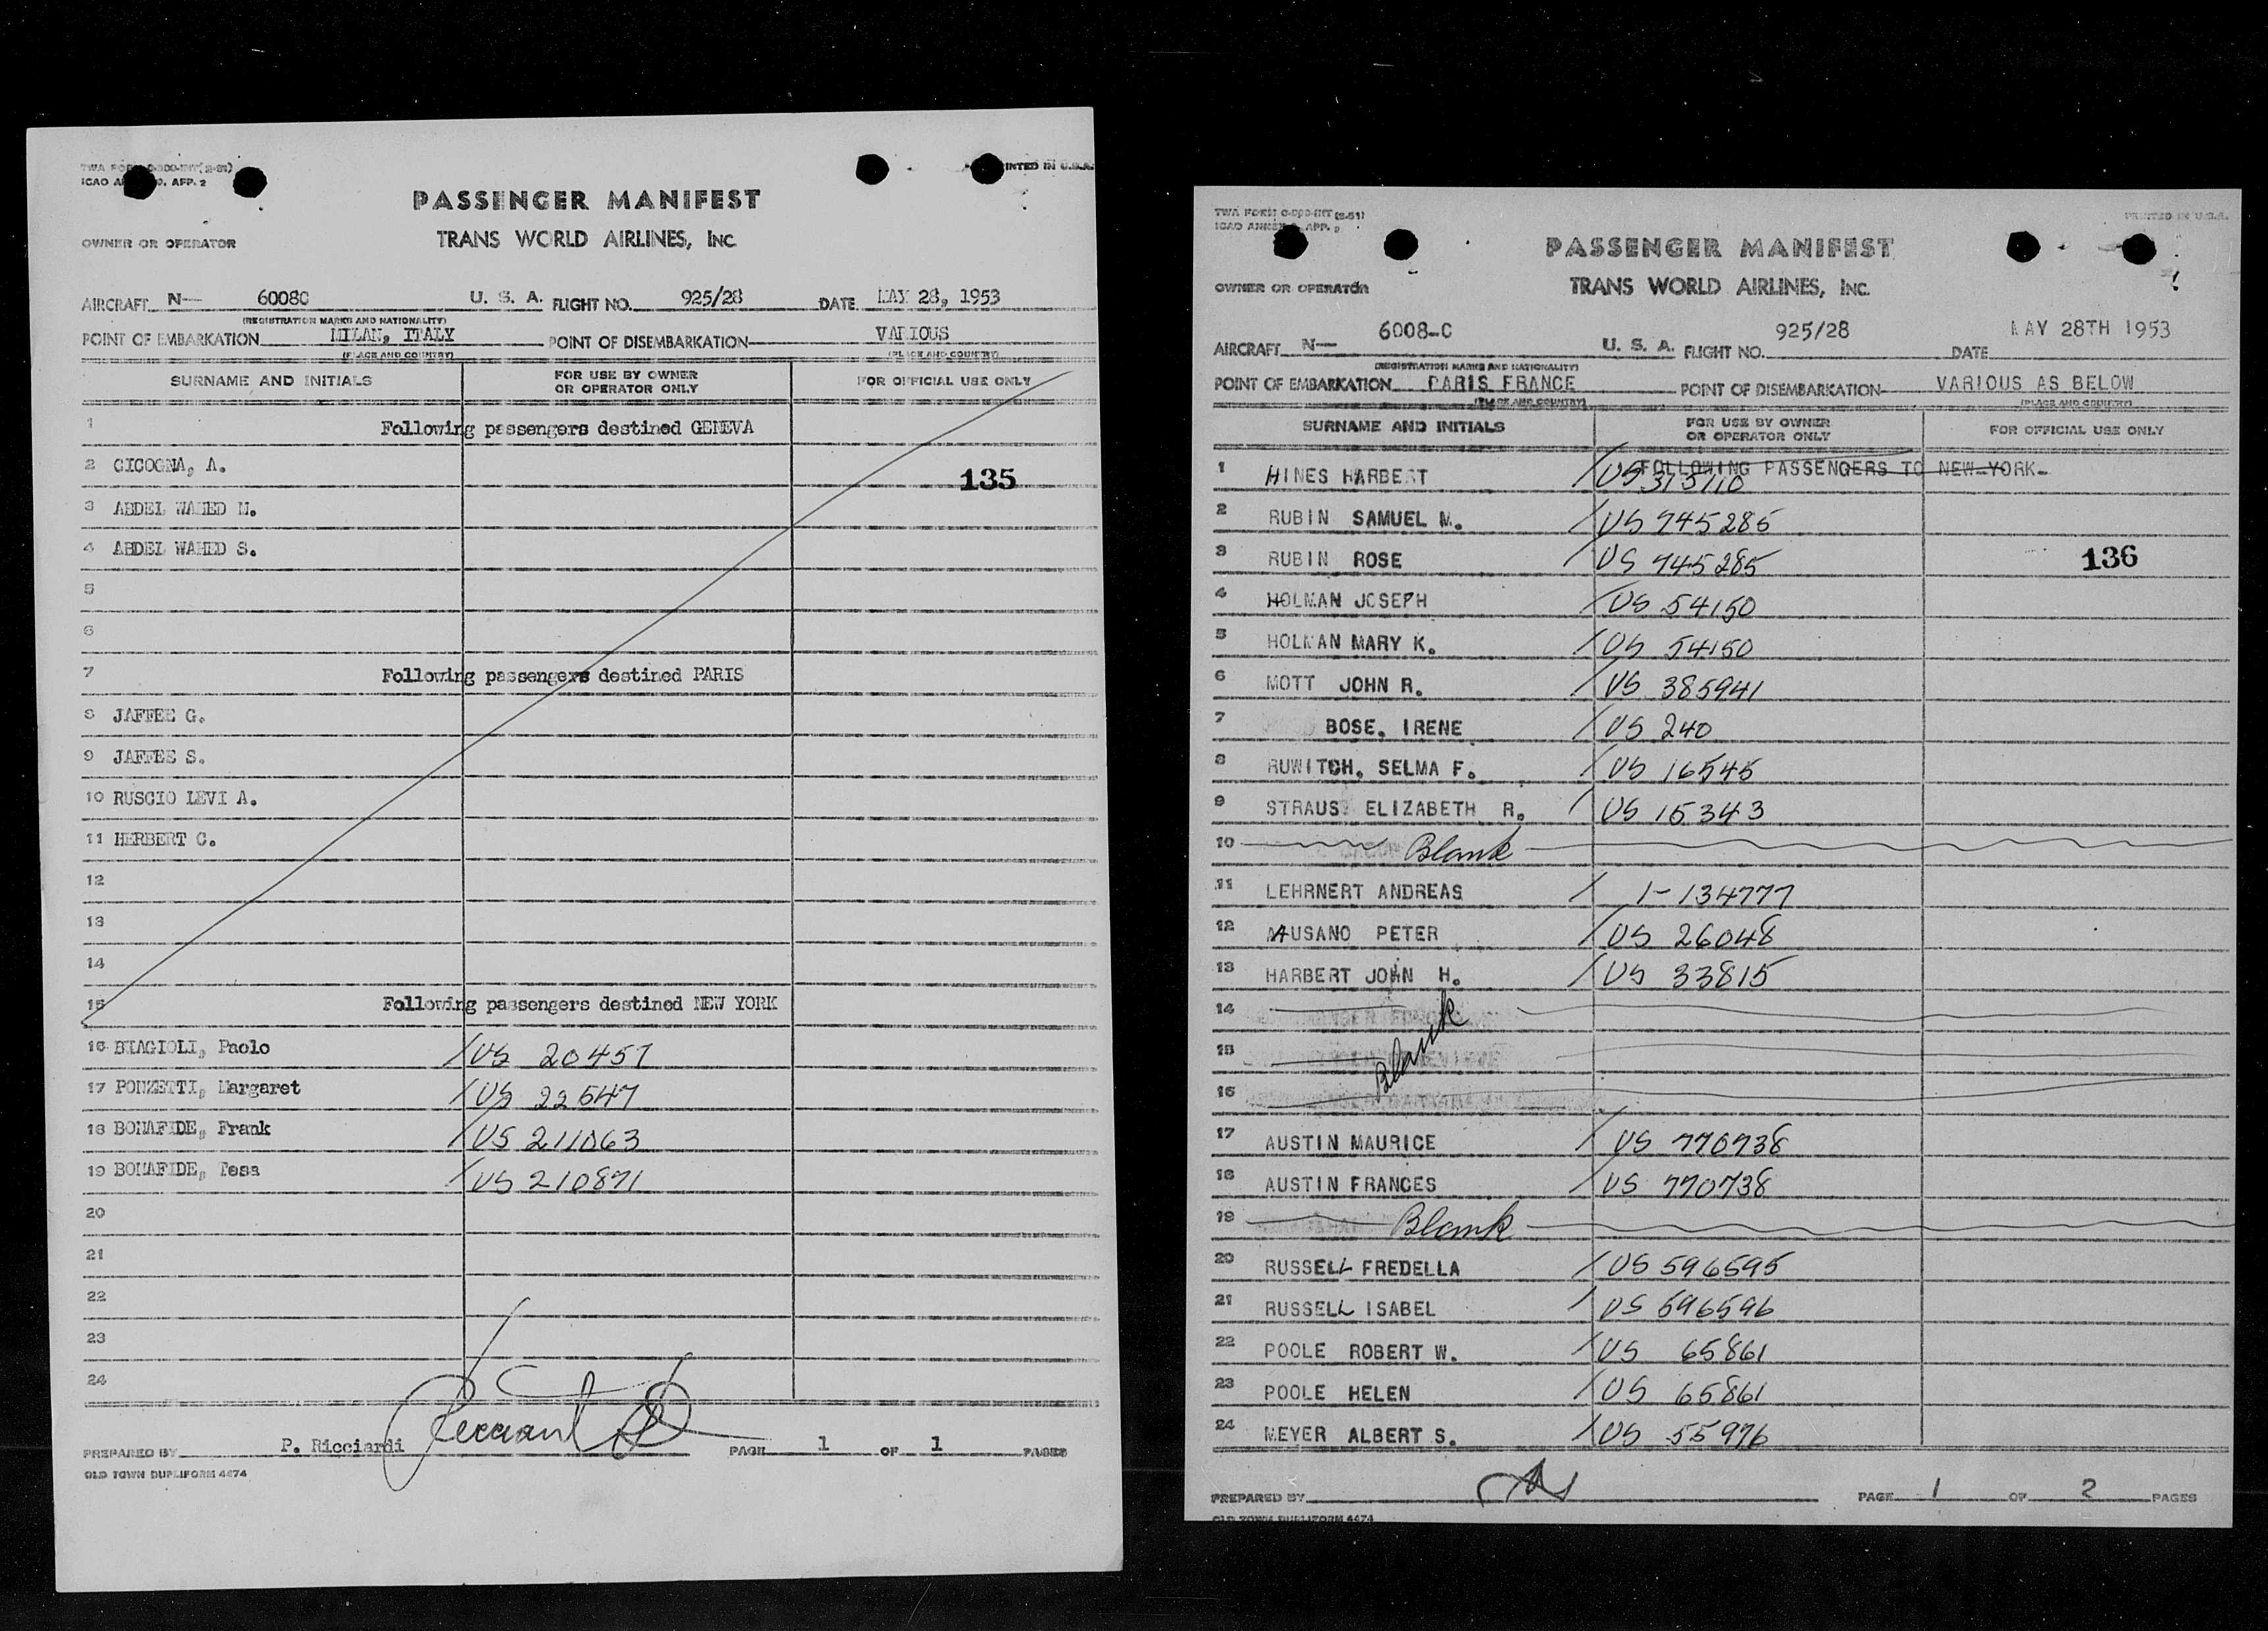 PASSENGER MANIFEST
TRANS WORLD AIRLINES, INC.
OWNER OR OPERATOR
AIRCRAFT N— 6008C U. S. A. FLIGHT NO. 925/28 DATE MAY 28, 1953
(REGISTRATION MARKS AND NATIONALITY)
POINT OF EMBARKATION MILAN, ITALY POINT OF DISEMBARKATION VARIOUS
(PLACE AND COUNTRY) (PLACE AND COUNTRY)
SURNAME AND INITIALS FOR USE BY OWNER OR OPERATOR ONLY FOR OFFICIAL USE ONLY
1 Following passengers destined GENEVA
2 CICOGNA, A.
135
3 ABDEL WAHED M.
4 ABDEL WAHED S.
5
6
7 Following passengers destined PARIS
8 JAFFEE G.
9 JAFFEE S.
10 RUSCIO LEVI A.
11 HERBERT C.
12
13
14
15 Following passengers destined NEW YORK
16 BIAGIOLI, Paolo / US 20457
17 PONZETTI, Margaret / US 22547
18 BONAFIDE, Frank / US 211063
19 BONAFIDE, Tesa / US 210871
20
21
22
23
24
PREPARED BY P. Ricciardi PAGE 1 OF 1 PAGES
OLD TOWN DUPLIFORM 4674
PRINTED IN U.S.A.
PASSENGER MANIFEST
TRANS WORLD AIRLINES, INC.
OWNER OR OPERATOR
AIRCRAFT N— 6008-C U. S. A. FLIGHT NO. 925/28 DATE MAY 28TH 1953
(REGISTRATION MARKS AND NATIONALITY)
POINT OF EMBARKATION PARIS FRANCE POINT OF DISEMBARKATION VARIOUS AS BELOW
(PLACE AND COUNTRY) (PLACE AND COUNTRY)
SURNAME AND INITIALS FOR USE BY OWNER OR OPERATOR ONLY FOR OFFICIAL USE ONLY
FOLLOWING PASSENGERS TO NEW-YORK-
1 HINES HARBERT / US 315110
2 RUBIN SAMUEL M. / US 745285
3 RUBIN ROSE / US 745285
136
4 HOLMAN JOSEPH / US 54150
5 HOLMAN MARY K. / US 54150
6 MOTT JOHN R. / US 385941
7 BOSE, IRENE / US 240
8 RUWITCH, SELMA F. / US 16545
9 STRAUS ELIZABETH R. / US 15343
10 Blank
11 LEHRNERT ANDREAS / 1-134777
12 AUSANO PETER / US 26048
13 HARBERT JOHN H. / US 33815
14
15 Blank
16
17 AUSTIN MAURICE / US 770738
18 AUSTIN FRANCES / US 770738
19 Blank
20 RUSSELL FREDELLA / US 596595
21 RUSSELL ISABEL / US 596596
22 POOLE ROBERT W. / US 65861
23 POOLE HELEN / US 65861
24 MEYER ALBERT S. / US 55976
PREPARED BY PAGE 1 OF 2 PAGES
OLD TOWN DUPLIFORM 4674